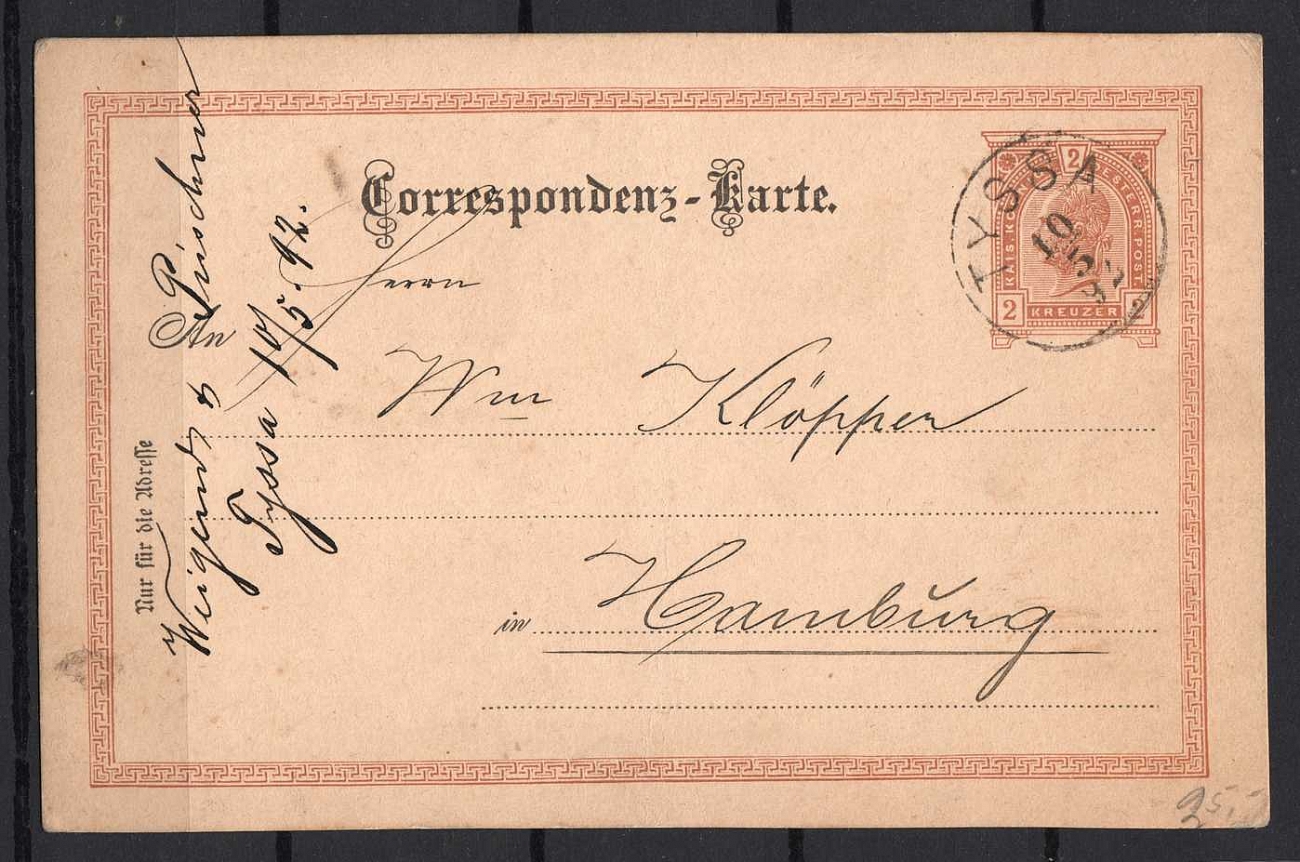 Correspondenz-Karte.
2
KAIS. KOENIGL. OESTERR. POST
2 KREUZER 2
TYSSA
10
5
92
An
Herrn
Wm Klöpper
in Hamburg
Nur für die Adresse
Weigend &
Tyssa 10/5. 92.